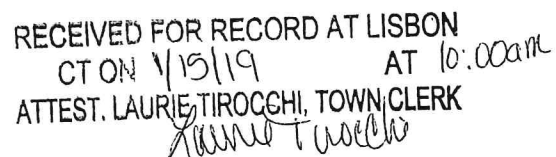 RECEIVED FOR RECORD AT LISBON
CT ON 1/15/19 AT 10:00am
ATTEST. LAURIE TIROCCHI, TOWN CLERK
Laurie Tirocchi